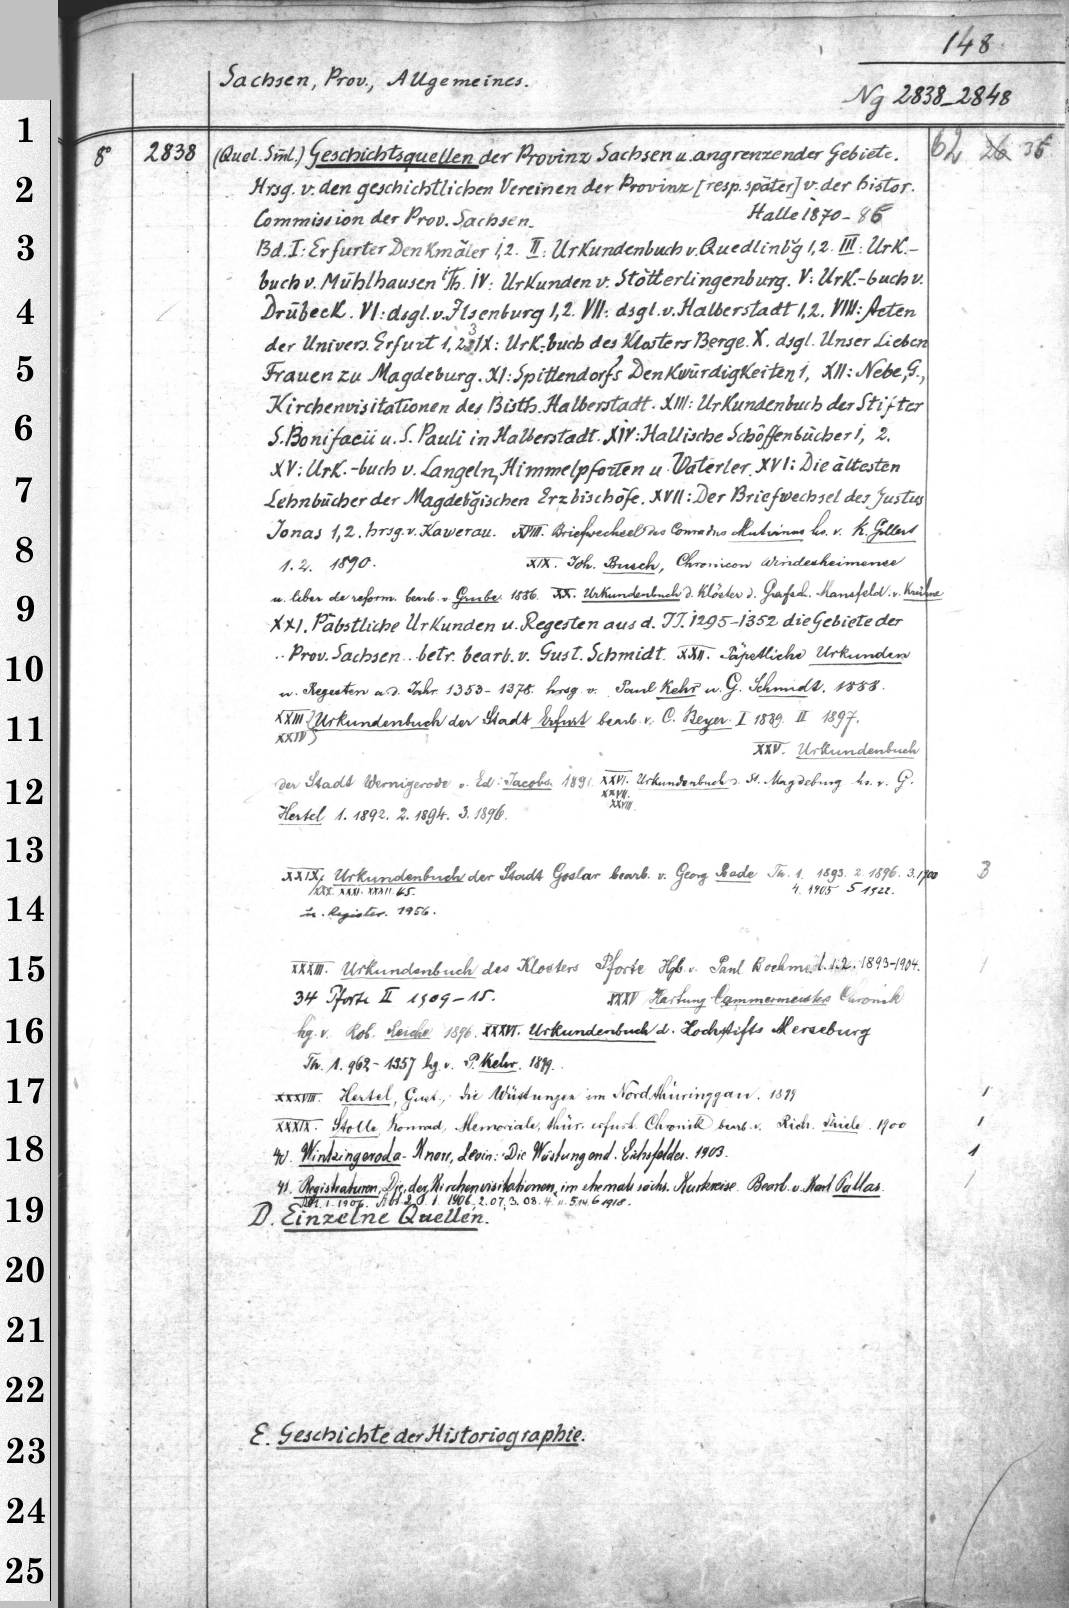 148
Sachsen, Prov., Allgemeines.
Ng 2838-2848
8° 2838 (Quel. Sml.) Geschichtsquellen der Provinz Sachsen u. angrenzender Gebiete. 62 26 36
Hrsg. v. den geschichtlichen Vereinen der Provinz [resp. später] v. der histor.
Commission der Prov. Sachsen. Halle 1870-86
Bd. I: Erfurter Denkmäler 1,2. II: Urkundenbuch v. Quedlinbg 1,2. III: Urk.-
buch v. Mühlhausen Th. IV: Urkunden v. Stötterlingenburg. V: Urk.-buch v.
Drübeck. VI: dsgl. v. Ilsenburg 1,2. VII: dsgl. v. Halberstadt 1,2. VIII: Acten
der Univers. Erfurt 1,2,3 IX: Urk.-buch des Klosters Berge. X. dsgl. Unser Lieben
Frauen zu Magdeburg. XI: Spittendorf's Denkwürdigkeiten 1, XII: Nebe, G.,
Kirchenvisitationen des Bisth. Halberstadt. XIII: Urkundenbuch der Stifter
S. Bonifacii u. S. Pauli in Halberstadt. XIV: Hallische Schöffenbücher 1, 2.
XV: Urk.-buch v. Langeln, Himmelpforten u. Waterler. XVI: Die ältesten
Lehnbücher der Magdebgischen Erzbischöfe. XVII: Der Briefwechsel des Justus
Jonas 1,2. hrsg. v. Kawerau. XVIII. Briefwechsel des Conradus Mutianus hs. v. K. Gillert
1. 2. 1890. XIX. Joh. Busch, Chronicon Windesheimense
u. liber de reform. bearb. v. Grube. 1886. XX. Urkundenbuch d. Klöster d. Grafsch. Mansfeld v. Krühne
XXI. Päbstliche Urkunden u. Regesten aus d. JJ. 1295-1352 die Gebiete der
.. Prov. Sachsen .. betr. bearb. v. Gust. Schmidt. XXII. Päpstliche Urkunden
u. Regesten a. d. Jahr. 1353-1378. hrsg. v. Paul Kehr u. G. Schmidt. 1888.
XXIII Urkundenbuch der Stadt Erfurt bearb. v. C. Beyer I 1889. II 1897.
XXIV
XXV. Urkundenbuch
der Stadt Wernigerode v. Ed. Jacobs. 1891. XXVI. Urkundenbuch d. St. Magdeburg hs. v. G.
XXVII.
XXVIII.
Hertel 1. 1892. 2. 1894. 3. 1896.
XXIX, Urkundenbuch der Stadt Goslar bearb. v. Georg Bode Th. 1. 1893. 2. 1896. 3. 1900 3
XXX. XXXI. XXXII. 45. 4. 1905 5 1922.
u. Register. 1956.
XXXIII. Urkundenbuch des Klosters Pforte Hgb. v. Paul Boehme I. 1. 2. 1893-1904. 1
34 Pforte II 1909-15. XXXV Hartung Cammermeisters Chronik
hg. v. Rob. Reiche 1896. XXXVI. Urkundenbuch d. Hochstifts Merseburg
Th. 1. 962-1357 hg. v. P. Kehr. 1899.
XXXVIII. Hertel, Gust., Die Wüstungen im Nordthüringgau. 1899 1
XXXIX. Stolle, Konrad, Memoriale, thür. erfurt. Chronik bearb. v. Rich. Thiele. 1900 1
40. Wintzingeroda-Knorr, Levin: Die Wüstungen d. Eichsfeldes. 1903. 1
41. Registraturen, Die, der Kirchenvisitationen im ehemals sächs. Kurkreise. Bearb. v. Karl Pallas. 1
Abt. 1. 1906. Abt 2. 1. 1906. 2. 07, 3. 08. 4. u. 5. 14. 6 1918.
D. Einzelne Quellen.
E. Geschichte der Historiographie.
1
2
3
4
5
6
7
8
9
10
11
12
13
14
15
16
17
18
19
20
21
22
23
24
25